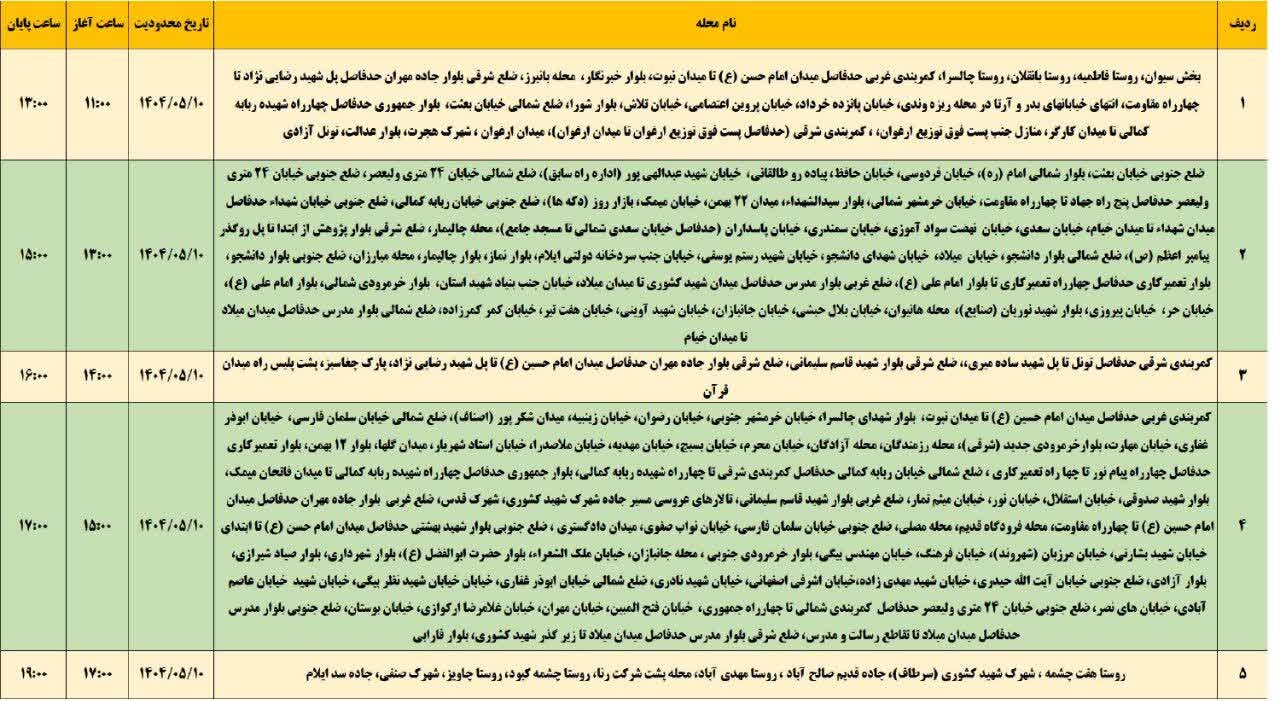 ردیف نام محله تاریخ محدودیت ساعت آغاز ساعت پایان
بخش سیوان، روستا فاطمیه، روستا بانقلان، روستا چالسرا، کمربندی غربی حدفاصل میدان امام حسن (ع) تا میدان نبوت، بلوار خبرنگار، محله بانبرز، ضلع شرقی بلوار جاده مهران حدفاصل پل شهید رضایی نژاد تا
۱ چهارراه مقاومت، انتهای خیابانهای بدر و آرتا در محله ریزه وندی، خیابان پانزده خرداد، خیابان پروین اعتصامی، خیابان تلاش، بلوار شورا، ضلع شمالی خیابان بعثت، بلوار جمهوری حدفاصل چهارراه شهیده ربابه ۱۴۰۴/۰۵/۱۰ ۱۱:۰۰ ۱۳:۰۰
کمالی تا میدان کارگر، منازل جنب پست فوق توزیع ارغوان، ، کمربندی شرقی (حدفاصل پست فوق توزیع ارغوان تا میدان ارغوان)، میدان ارغوان ، شهرک هجرت، بلوار عدالت، تونل آزادی
ضلع جنوبی خیابان بعثت، بلوار شمالی امام (ره)، خیابان فردوسی، خیابان حافظ، پیاده رو طالقانی، خیابان شهید عبدالهی پور (اداره راه سابق)، ضلع شمالی خیابان ۲۴ متری ولیعصر، ضلع جنوبی خیابان ۲۴ متری
ولیعصر حدفاصل پنج راه جهاد تا چهارراه مقاومت، خیابان خرمشهر شمالی، بلوار سیدالشهداء، میدان ۲۲ بهمن، خیابان میمک، بازار روز (دکه ها)، ضلع جنوبی خیابان ربابه کمالی، ضلع جنوبی خیابان شهداء حدفاصل
میدان شهداء تا میدان خیام، خیابان سعدی، خیابان نهضت سواد آموزی، خیابان سمندری، خیابان پاسداران (حدفاصل خیابان سعدی شمالی تا مسجد جامع)، محله چالیمار، ضلع شرقی بلوار پژوهش از ابتدا تا پل روگذر
۲ پیامبر اعظم (ص)، ضلع شمالی بلوار دانشجو، خیابان میلاد، خیابان شهدای دانشجو، خیابان شهید رستم یوسفی، خیابان جنب سردخانه دولتی ایلام، بلوار نماز، بلوار چالیمار، محله مبارزان، ضلع جنوبی بلوار دانشجو، ۱۴۰۴/۰۵/۱۰ ۱۳:۰۰ ۱۵:۰۰
بلوار تعمیرکاری حدفاصل چهارراه تعمیرکاری تا بلوار امام علی (ع)، ضلع غربی بلوار مدرس حدفاصل میدان شهید کشوری تا میدان میلاد، خیابان جنب بنیاد شهید استان، بلوار خرمرودی شمالی، بلوار امام علی (ع)،
خیابان حر، خیابان پیروزی، بلوار شهید نوریان (صنایع)، محله هانیوان، خیابان بلال حبشی، خیابان جانبازان، خیابان شهید آوینی، خیابان هفت تیر، خیابان کمر کمرزاده، ضلع شمالی بلوار مدرس حدفاصل میدان میلاد
تا میدان خیام
کمربندی شرقی حدفاصل تونل تا پل شهید ساده میری،، ضلع شرقی بلوار شهید قاسم سلیمانی، ضلع شرقی بلوار جاده مهران حدفاصل میدان امام حسین (ع) تا پل شهید رضایی نژاد، پارک چغاسبز، پشت پلیس راه میدان
۳ قرآن ۱۴۰۴/۰۵/۱۰ ۱۴:۰۰ ۱۶:۰۰
کمربندی غربی حدفاصل میدان امام حسین (ع) تا میدان نبوت، بلوار شهدای چالسرا، خیابان خرمشهر جنوبی، خیابان رضوان، خیابان زینبیه، میدان شکر پور (اصناف)، ضلع شمالی خیابان سلمان فارسی، خیابان ابوذر
غفاری، خیابان مهارت، بلوارخرمرودی جدید (شرقی)، محله رزمندگان، محله آزادگان، خیابان محرم، خیابان بسیج، خیابان مهدیه، خیابان ملاصدرا، خیابان استاد شهریار ، میدان گلها، بلوار ۱۲ بهمن، بلوار تعمیرکاری
حدفاصل چهارراه پیام نور تا چها راه تعمیرکاری ، ضلع شمالی خیابان ربابه کمالی حدفاصل کمربندی شرقی تا چهارراه شهیده ربابه کمالی، بلوار جمهوری حدفاصل چهارراه شهیده ربابه کمالی تا میدان فاتحان میمک،
بلوار شهید صدوقی، خیابان استقلال، خیابان نور، خیابان میثم تمار، ضلع غربی بلوار شهید قاسم سلیمانی، تالارهای عروسی مسیر جاده شهرک شهید کشوری، شهرک قدس، ضلع غربی بلوار جاده مهران حدفاصل میدان
۴ امام حسین (ع) تا چهارراه مقاومت، محله فرودگاه قدیم، محله مصلی، ضلع جنوبی خیابان سلمان فارسی، خیابان نواب صفوی، میدان دادگستری ، ضلع جنوبی بلوار شهید بهشتی حدفاصل میدان امام حسن (ع) تا ابتدای ۱۴۰۴/۰۵/۱۰ ۱۵:۰۰ ۱۷:۰۰
خیابان شهید بشارتی، خیابان مرزبان (شهروند)، خیابان فرهنگ، خیابان مهندس بیگی، بلوار خرمرودی جنوبی ، محله جانبازان، خیابان ملک الشعراء، بلوار حضرت ابوالفضل (ع)، بلوار شهرداری، بلوار صیاد شیرازی،
بلوار آزادی، ضلع جنوبی خیابان آیت الله حیدری، خیابان شهید مهدی زاده،خیابان اشرفی اصفهانی، خیابان شهید نادری، ضلع شمالی خیابان ابوذر غفاری، خیابان خیابان شهید نظر بیگی، خیابان شهید خیابان عاصم
آبادی، خیابان های نصر، ضلع جنوبی خیابان ۲۴ متری ولیعصر حدفاصل کمربندی شمالی تا چهارراه جمهوری، خیابان فتح المبین، خیابان مهران، خیابان غلامرضا ارکوازی، خیابان بوستان، ضلع جنوبی بلوار مدرس
حدفاصل میدان میلاد تا تقاطع رسالت و مدرس، ضلع شرقی بلوار مدرس حدفاصل میدان میلاد تا زیر گذر شهید کشوری، بلوار فارابی
۵ روستا هفت چشمه ، شهرک شهید کشوری (سرطاق)، جاده قدیم صالح آباد ، روستا مهدی آباد، محله پشت شرکت رنا، روستا چشمه کبود، روستا چاویز، شهرک صنفی، جاده سد ایلام ۱۴۰۴/۰۵/۱۰ ۱۷:۰۰ ۱۹:۰۰